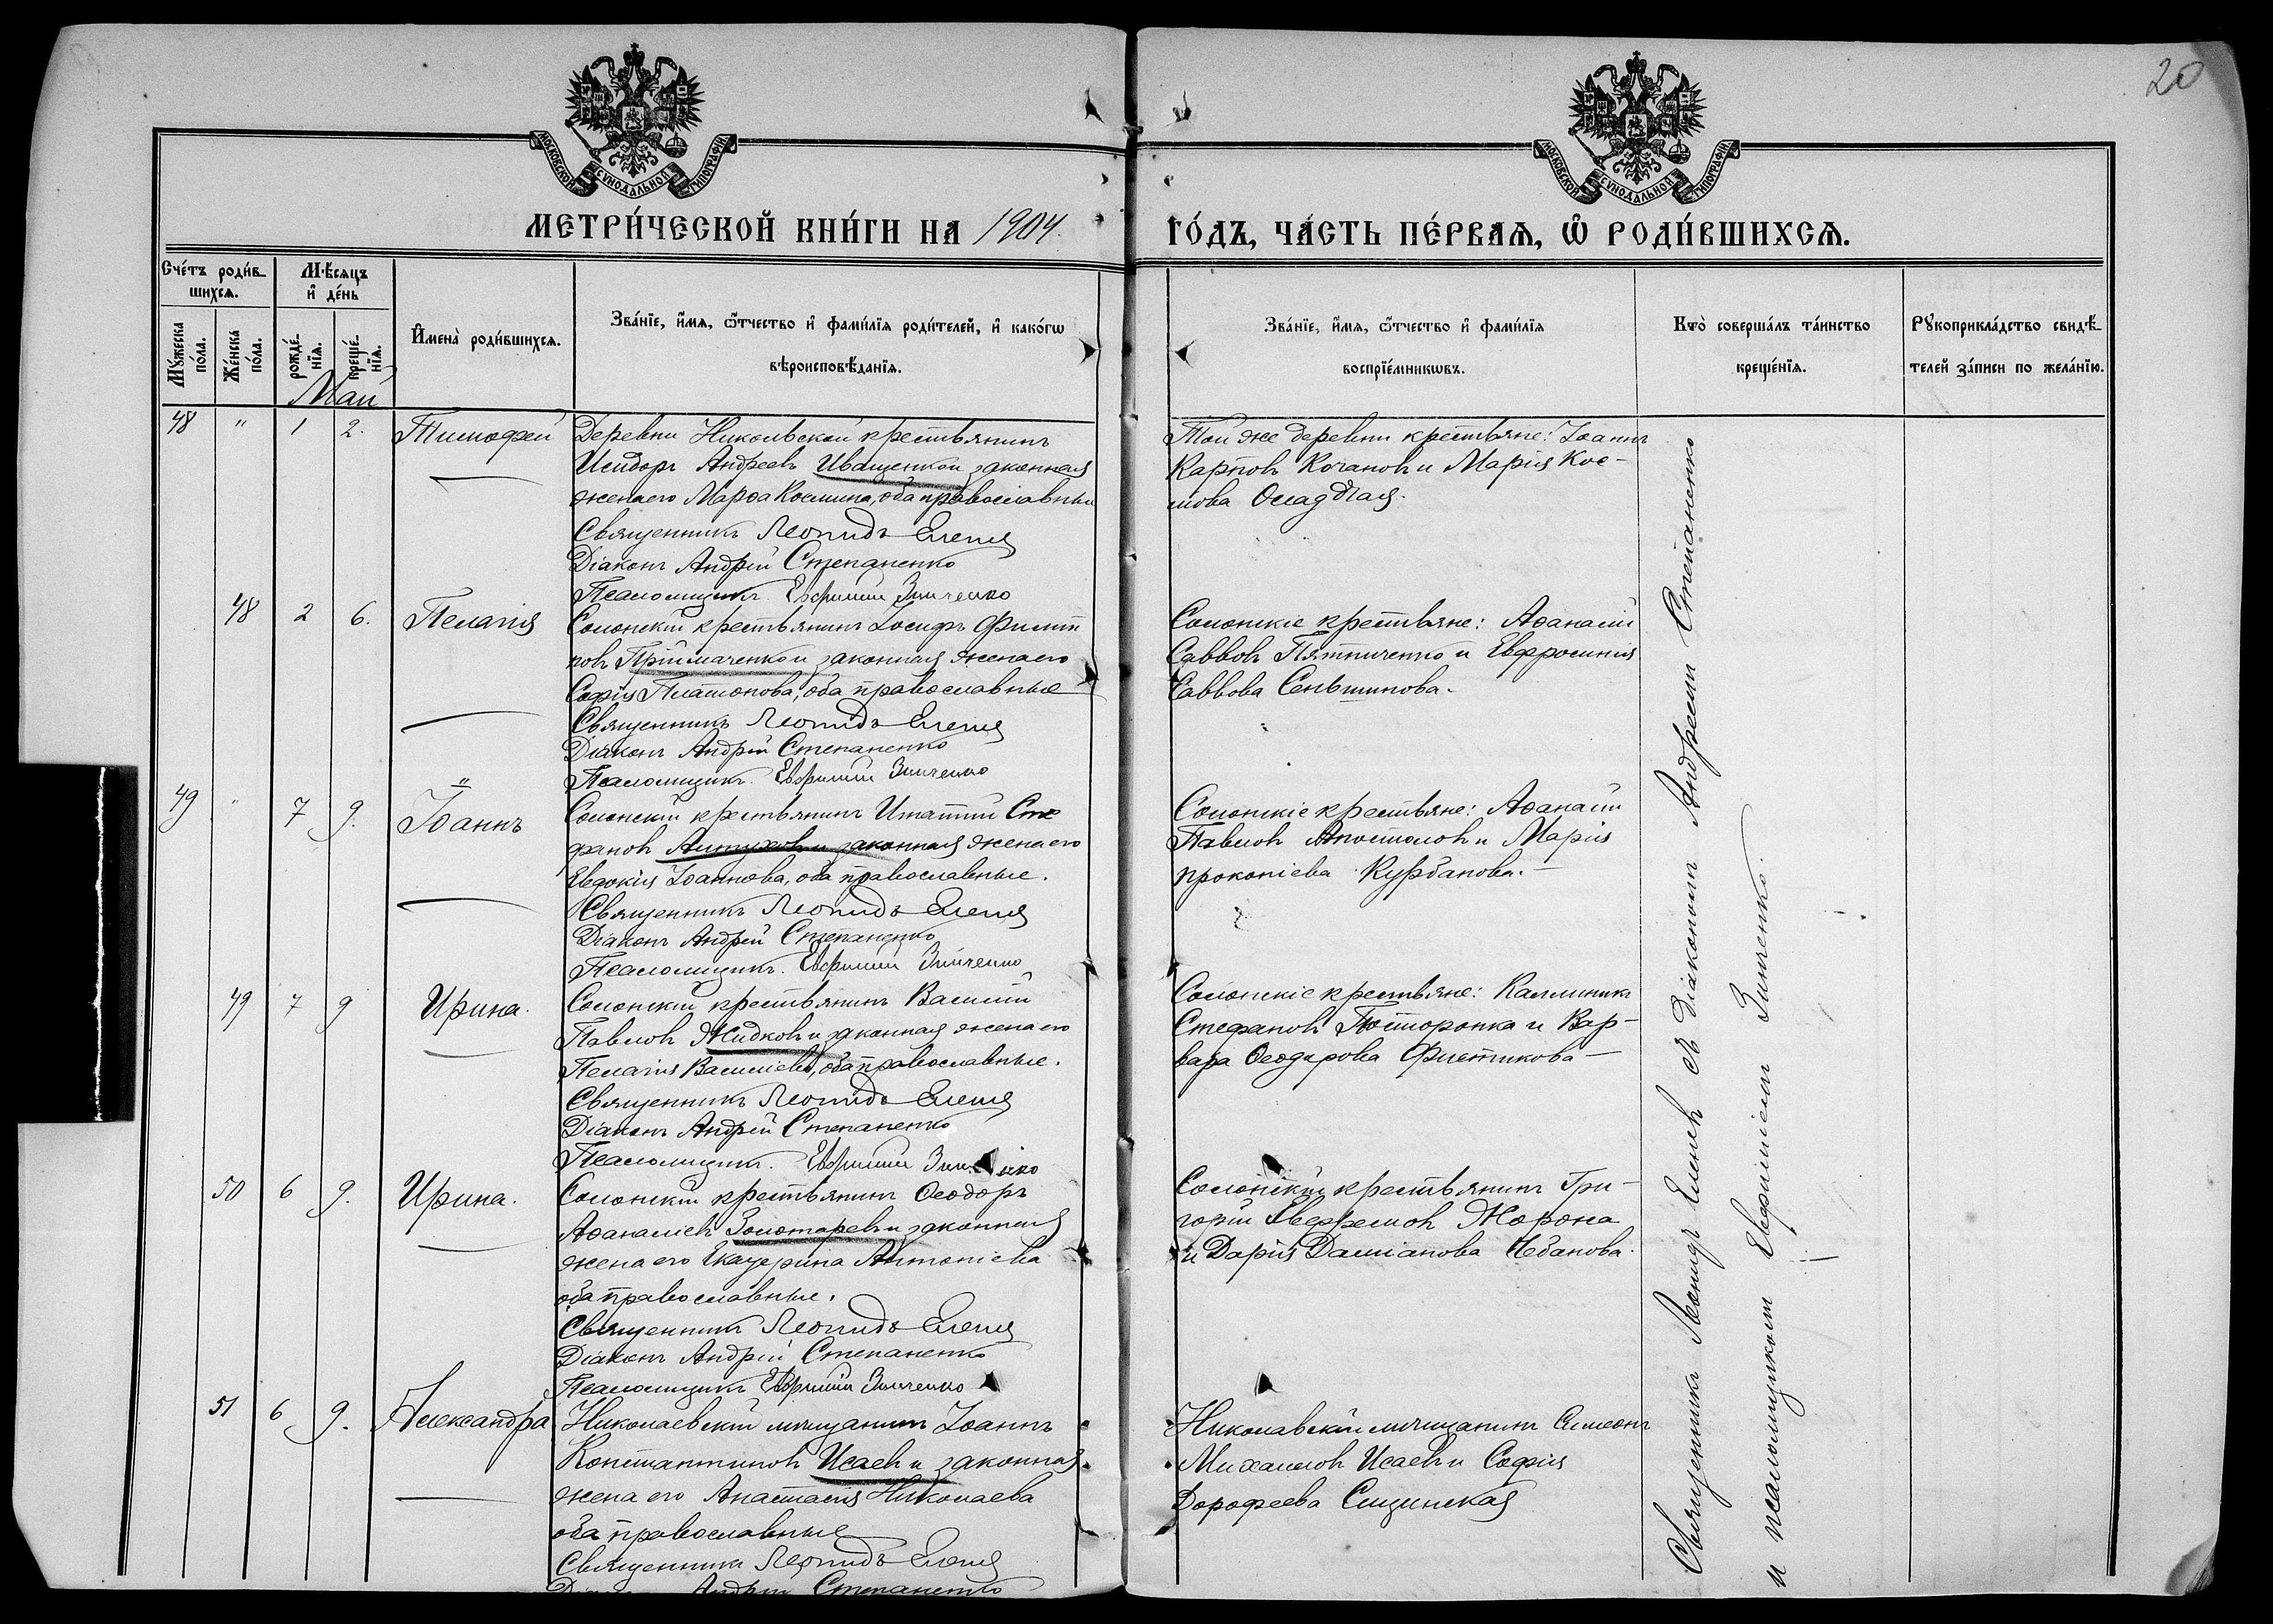 20
МОСКОВСКОЙ СУНОДАЛЬНОЙ ТИПОГРАФІИ
МОСКОВСКОЙ СУНОДАЛЬНОЙ ТИПОГРАФІИ
МЕТРИ́ЧЕСКОЙ КНИ́ГИ НА 1904.
ГО́ДЪ, ЧА́СТЬ ПЕ́РВАѦ, Ѡ҆ РОДИ́ВШИХСѦ.
Сче́тъ роди́в-
шихсѧ.
Мѣ́сѧцъ
и҆ де́нь
Мꙋ́жеска
по́ла.
Же́нска
по́ла.
рожде́-
нїѧ.
креще́-
нїѧ.
И҆мена̀ роди́вшихсѧ.
Зва́нїе, и҆́мѧ, ѻ҆́тчество и҆ фами́лїѧ роди́телей, и҆ како́гѡ
вѣроисповѣ́данїѧ.
Зва́нїе, и҆́мѧ, ѻ҆́тчество и҆ фами́лїѧ
воспрїе́мникѡвъ.
Кто̀ соверша́лъ та́инство
креще́нїѧ.
Рꙋкоприкла́дство свидѣ́-
телей за́писи по жела́нїю.
Май
48 " 1 2. Тимофей
Деревни Никольской крестьянинъ
Исидоръ Андреевъ Иващенко и законная
жена его Марѳа Космина, оба православные
Священникъ Леонидъ
Діаконъ Андрей Степаненко
Псаломщикъ Евфимій Зинченко
Той же деревни крестьяне: Іоаннъ
Карповъ Кочановъ и Марія Кос-
мова
48 2 6. Пелагія
Солонскій крестьянинъ Іосифъ Филип
повъ Пріймаченко и законная жена его
Софія Платонова, оба православные
Священникъ Леонидъ
Діаконъ Андрей Степаненко
Псаломщикъ Евфимій Зинченко
Солонскіе крестьяне: Аѳанасій
Саввовъ Пятниченко и Евфросинія
Саввова Сеньшинова.
49 " 7 9. Іоаннъ
Солонскій крестьянинъ Ипатій Сте
фановъ Алтуховъ и законная жена его
Евдокія Іоаннова, оба православные.
Священникъ Леонидъ
Діаконъ Андрей Степаненко
Псаломщикъ. Евфимій Зинченко
Солонскіе крестьяне: Аѳанасій
Павловъ Апостоловъ и Марія
Прокопіева Курбанова.
49 7 9 Ирина.
Солонскій крестьянинъ Василій
Павловъ Жидковъ и законная жена его
Пелагія Василіева, оба православные.
Священникъ Леонидъ
Діаконъ Андрей Степаненко
Псаломщикъ. Евфимій
Солонскіе крестьяне: Каллиникъ
Стефановъ Посторонка и Вар-
вара Ѳеодорова Филстикова
50 6 9. Ирина.
Солонскій крестьянинъ Ѳеодоръ
Аѳанасіевъ Золотаревъ и законная
жена его Екатерина Антоніева
оба православные.
Священникъ Леонидъ
Діаконъ Андрей Степаненко
Псаломщикъ Евфимій Зинченко
Солонскій крестьянинъ Гри-
горій Евфремовъ Жорона
и Дарія Даміанова Чебанова.
51 6 9. Александра
Николаевскій мѣщанинъ Іоаннъ
Константиновъ Исаевъ и законная
жена его Анастасія Николаева
оба православные
Священникъ Леонидъ
Андрей Степаненко
Николаевскій мѣщанинъ Симеонъ
Михаиловъ Исаевъ и Софія
Дорофеева
Священникъ Леонидъ съ діакономъ Андреемъ Степаненко
и псаломщикомъ Евфиміемъ Зинченко.